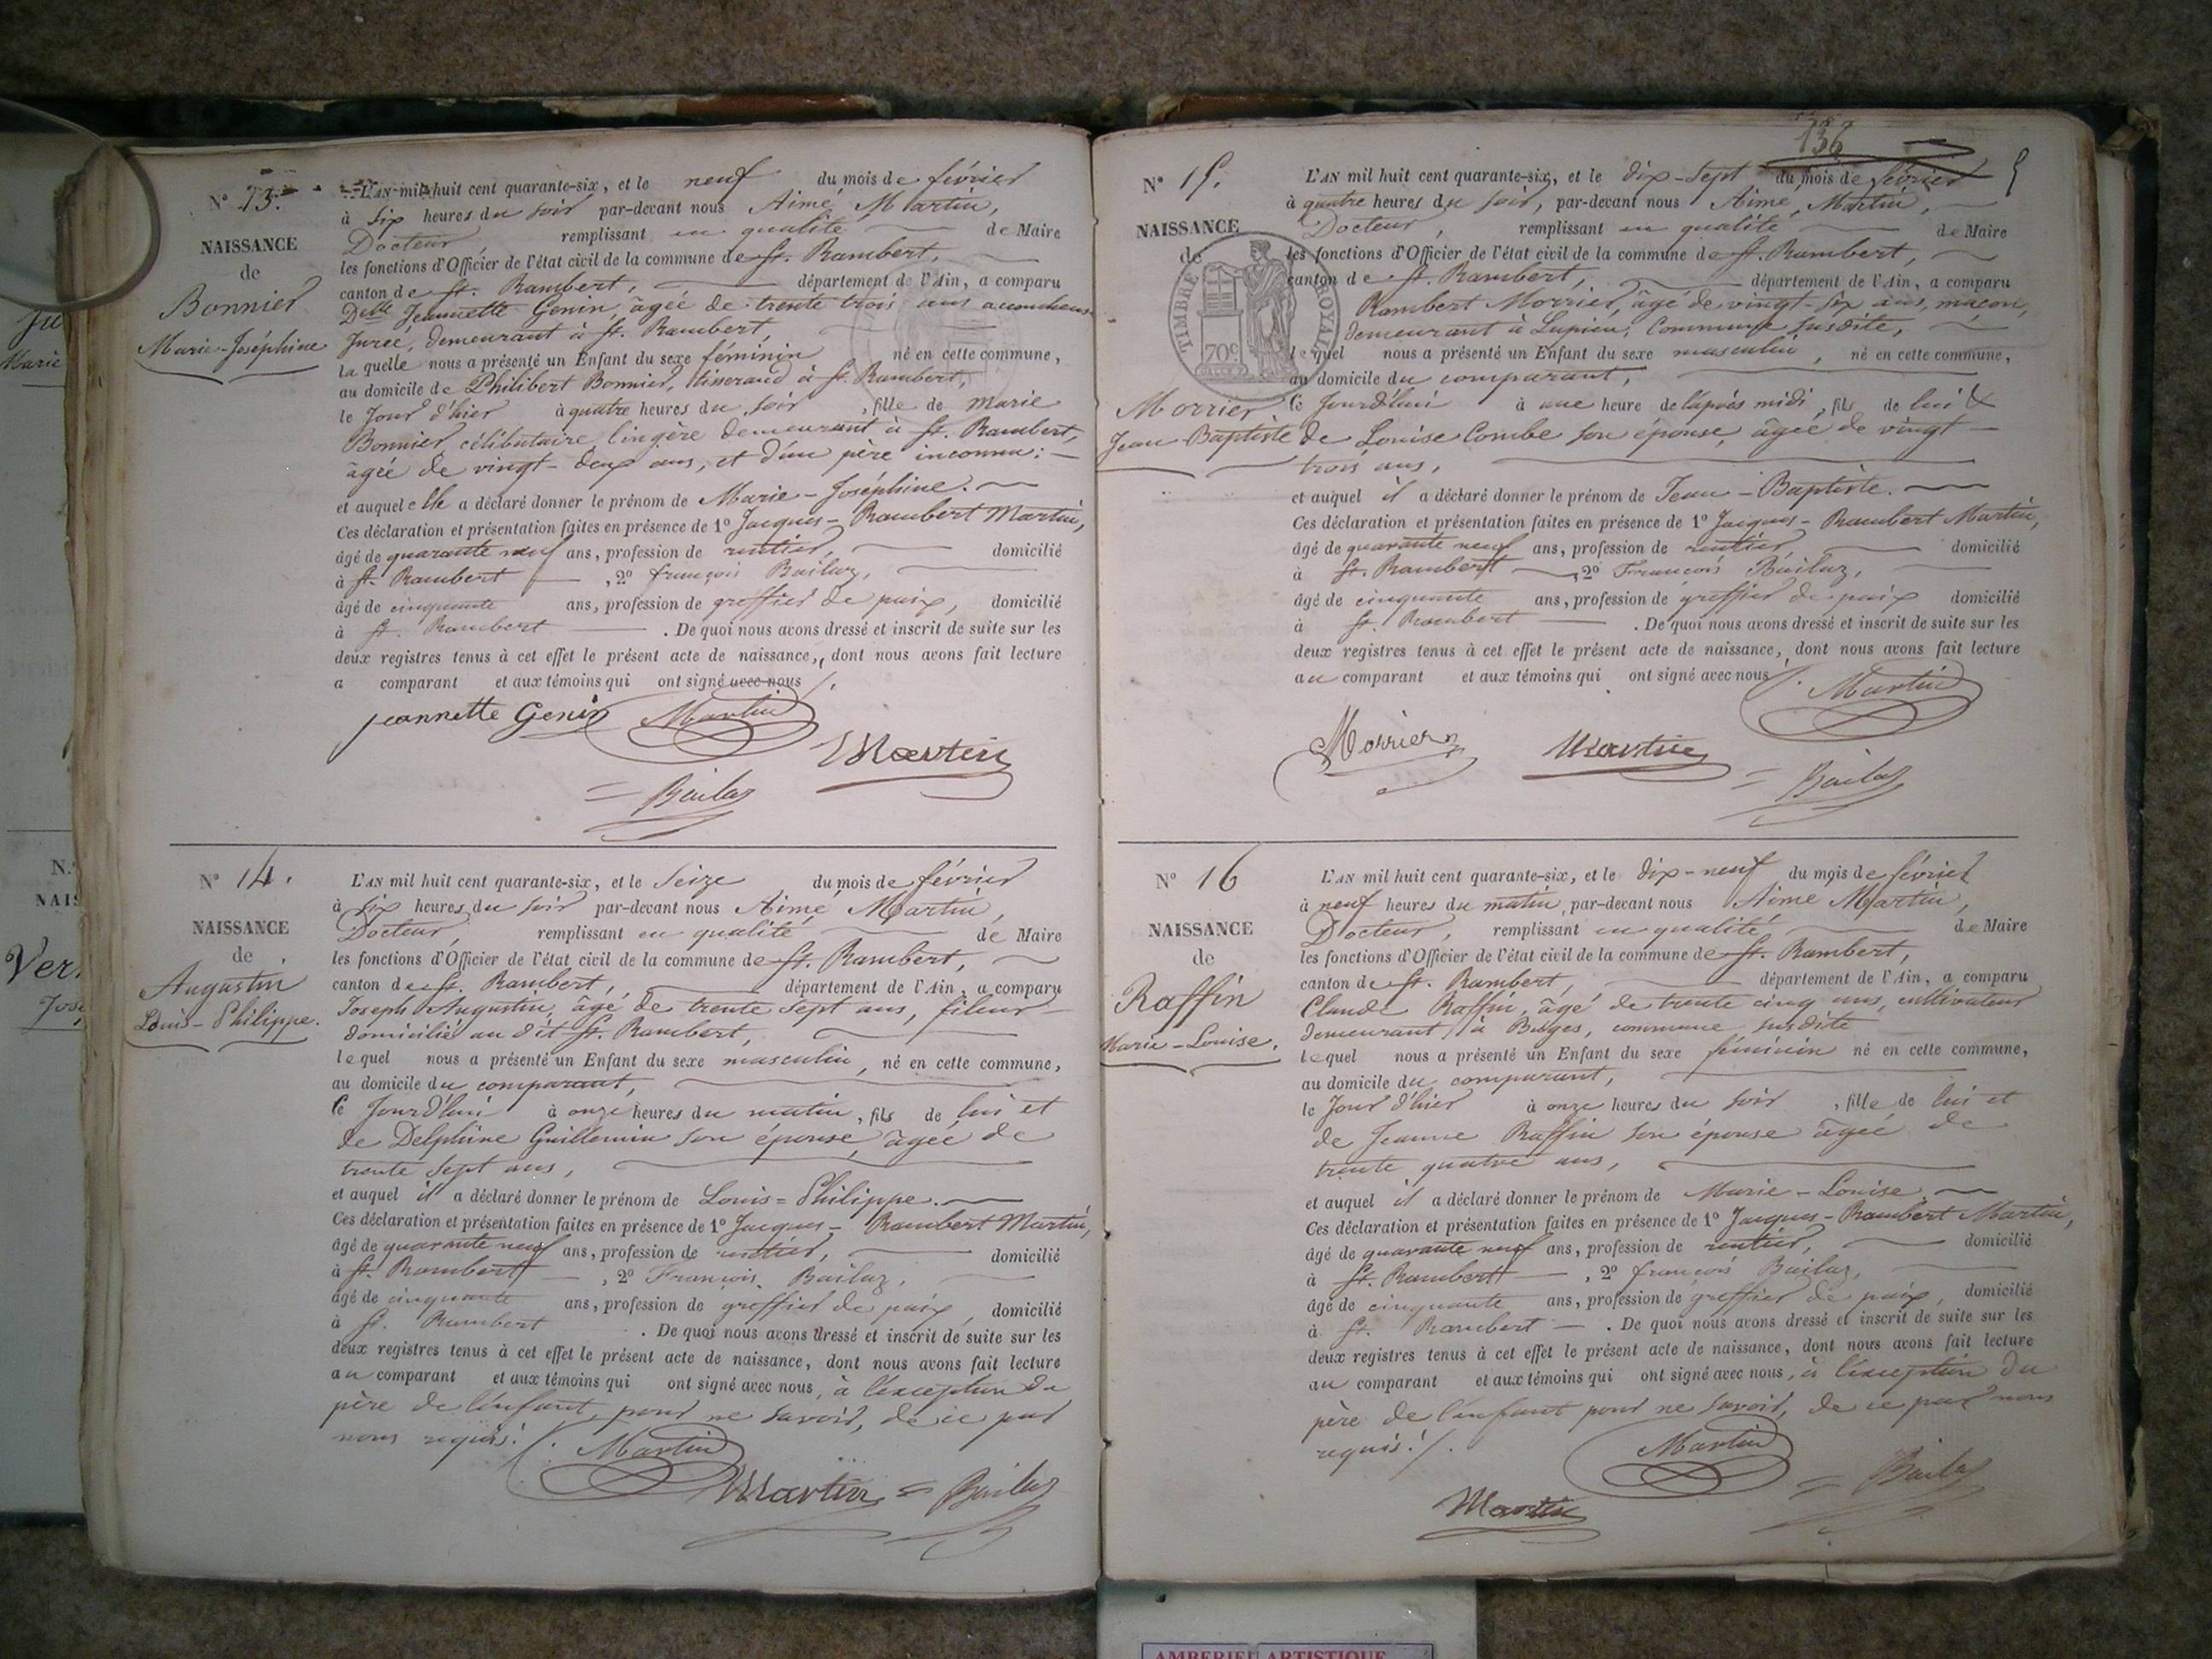 N° 13.
NAISSANCE
de
Bonnier
Marie-Joséphine
L'AN mil huit cent quarante-six, et le neuf du mois de février
à six heures du soir par-devant nous Aimé Martin,
Docteur, remplissant en qualité de Maire
les fonctions d'Officier de l'état civil de la commune de St. Rambert,
canton de St. Rambert, département de l'Ain, a comparu
Delle Jeannette Genin, âgée de trente trois ans accoucheuse
Jurée, demeurant à St. Rambert,
la quelle nous a présenté un Enfant du sexe féminin né en cette commune,
au domicile de Philibert Bonnier, tisserand à St. Rambert,
le Jour d'hier à quatre heures du soir, fille de Marie
Bonnier célibataire lingère demeurant à St. Rambert,
âgée de vingt-deux ans, et d'un père inconnu:
et auquel elle a déclaré donner le prénom de Marie-Joséphine.
Ces déclaration et présentation faites en présence de 1° Jacques-Rambert Martin,
âgé de quarante neuf ans, profession de rentier, domicilié
à St. Rambert, 2° françois Bailaz,
âgé de cinquante ans, profession de greffier de paix, domicilié
à St. Rambert. De quoi nous avons dressé et inscrit de suite sur les
deux registres tenus à cet effet le présent acte de naissance, dont nous avons fait lecture
a comparant et aux témoins qui ont signé avec nous
jeannette Genin Martin
Martin
Bailaz
N° 14.
NAISSANCE
de
Augustin
Louis-Philippe.
L'AN mil huit cent quarante-six, et le Seize du mois de février
à six heures du soir par-devant nous Aimé Martin,
Docteur, remplissant en qualité de Maire
les fonctions d'Officier de l'état civil de la commune de St. Rambert,
canton de St. Rambert, département de l'Ain, a comparu
Joseph Augustin, âgé de trente sept ans, fileur
domicilié au dit St. Rambert,
lequel nous a présenté un Enfant du sexe masculin, né en cette commune,
au domicile du comparant,
ce Jourd'hui à onze heures du matin, fils de lui et
de Delphine Guillemin son épouse, âgée de
trente sept ans,
et auquel il a déclaré donner le prénom de Louis=Philippe.
Ces déclaration et présentation faites en présence de 1° Jacques-Rambert Martin,
âgé de quarante neuf ans, profession de rentier, domicilié
à St. Rambert, 2° François Bailaz,
âgé de cinquante ans, profession de greffier de paix, domicilié
à St. Rambert. De quoi nous avons dressé et inscrit de suite sur les
deux registres tenus à cet effet le présent acte de naissance, dont nous avons fait lecture
au comparant et aux témoins qui ont signé avec nous, à l'exception du
père de l'enfant, pour ne savoir, de ce par
nous requis.
Martin
Martin Bailaz
136
5
N° 15.
NAISSANCE
de
TIMBRE ROYAL
70c
Morrier
Jean Baptiste
L'AN mil huit cent quarante-six, et le dix-sept du mois de février
à quatre heures du soir, par-devant nous Aimé Martin,
Docteur, remplissant en qualité de Maire
les fonctions d'Officier de l'état civil de la commune de St. Rambert,
canton de St. Rambert, département de l'Ain, a comparu
Rambert Morrier, âgé de vingt-six ans, maçon,
demeurant à Lupieu, Commune susdite,
lequel nous a présenté un Enfant du sexe masculin, né en cette commune,
au domicile du comparant,
ce Jourd'hui à une heure de l'après midi, fils de lui &
de Louise Combe son épouse, âgée de vingt
trois ans,
et auquel il a déclaré donner le prénom de Jean-Baptiste.
Ces déclaration et présentation faites en présence de 1° Jacques-Rambert Martin,
âgé de quarante neuf ans, profession de rentier, domicilié
à St. Rambert, 2° François Bailaz,
âgé de cinquante ans, profession de greffier de paix domicilié
à St. Rambert. De quoi nous avons dressé et inscrit de suite sur les
deux registres tenus à cet effet le présent acte de naissance, dont nous avons fait lecture
au comparant et aux témoins qui ont signé avec nous
Martin
Morrier Martin
Bailaz
N° 16
NAISSANCE
de
Raffin
Marie-Louise.
L'AN mil huit cent quarante-six, et le dix-neuf du mois de février
à neuf heures du matin, par-devant nous Aimé Martin,
Docteur, remplissant en qualité de Maire
les fonctions d'Officier de l'état civil de la commune de St. Rambert,
canton de St. Rambert, département de l'Ain, a comparu
Claude Raffin, âgé de trente cinq ans, cultivateur
demeurant à Buges, commune susdite
lequel nous a présenté un Enfant du sexe féminin né en cette commune,
au domicile du comparant,
le Jour d'hier à onze heures du soir, fille de lui et
de Jeanne Raffin son épouse âgée de
trente quatre ans,
et auquel il a déclaré donner le prénom de Marie-Louise.
Ces déclaration et présentation faites en présence de 1° Jacques-Rambert Martin,
âgé de quarante neuf ans, profession de rentier, domicilié
à St. Rambert, 2° françois Bailaz,
âgé de cinquante ans, profession de greffier de paix, domicilié
à St. Rambert. De quoi nous avons dressé et inscrit de suite sur les
deux registres tenus à cet effet le présent acte de naissance, dont nous avons fait lecture
au comparant et aux témoins qui ont signé avec nous, à l'exception du
père de l'enfant pour ne savoir, de ce par nous
requis.
Martin
Bailaz
Martin
AMBERIEU ARTISTIQUE